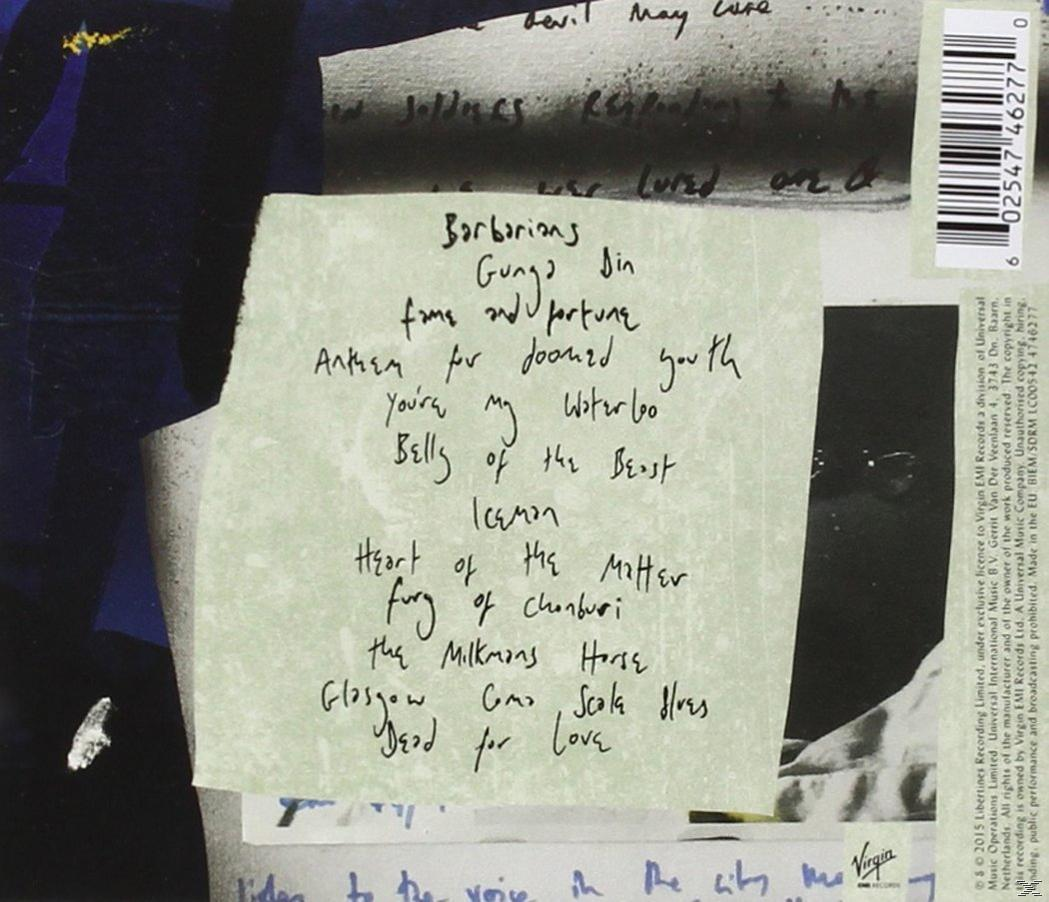 devil May Care ........
soldiers Responding to the
lured are a
Barbarians
Gunga Din
fame and fortune
Anthem for doomed youth
You're my Waterloo
Belly of the Beast
Iceman
Heart of the Matter
fury of Chonburi
the Milkmans Horse
Glasgow Coma Scale Blues
Dead for Love
listen to the voice in the city
Virgin
EMI RECORDS
6 02547 46277 0
℗ & © 2015 Libertines Recording Limited, under exclusive licence to Virgin EMI Records a division of Universal
Music Operations Limited. Universal International Music B.V. Gerrit Van Der Veenlaan 4, 3743 Dn, Baarn,
Netherlands. All rights of the manufacturer and of the owner of the work produced reserved. The copyright in
this recording is owned by Virgin EMI Records Ltd. A Universal Music Company. Unauthorised copying, hiring,
lending, public performance and broadcasting prohibited. Made in the EU. BIEM/SDRM LC00542 4746277